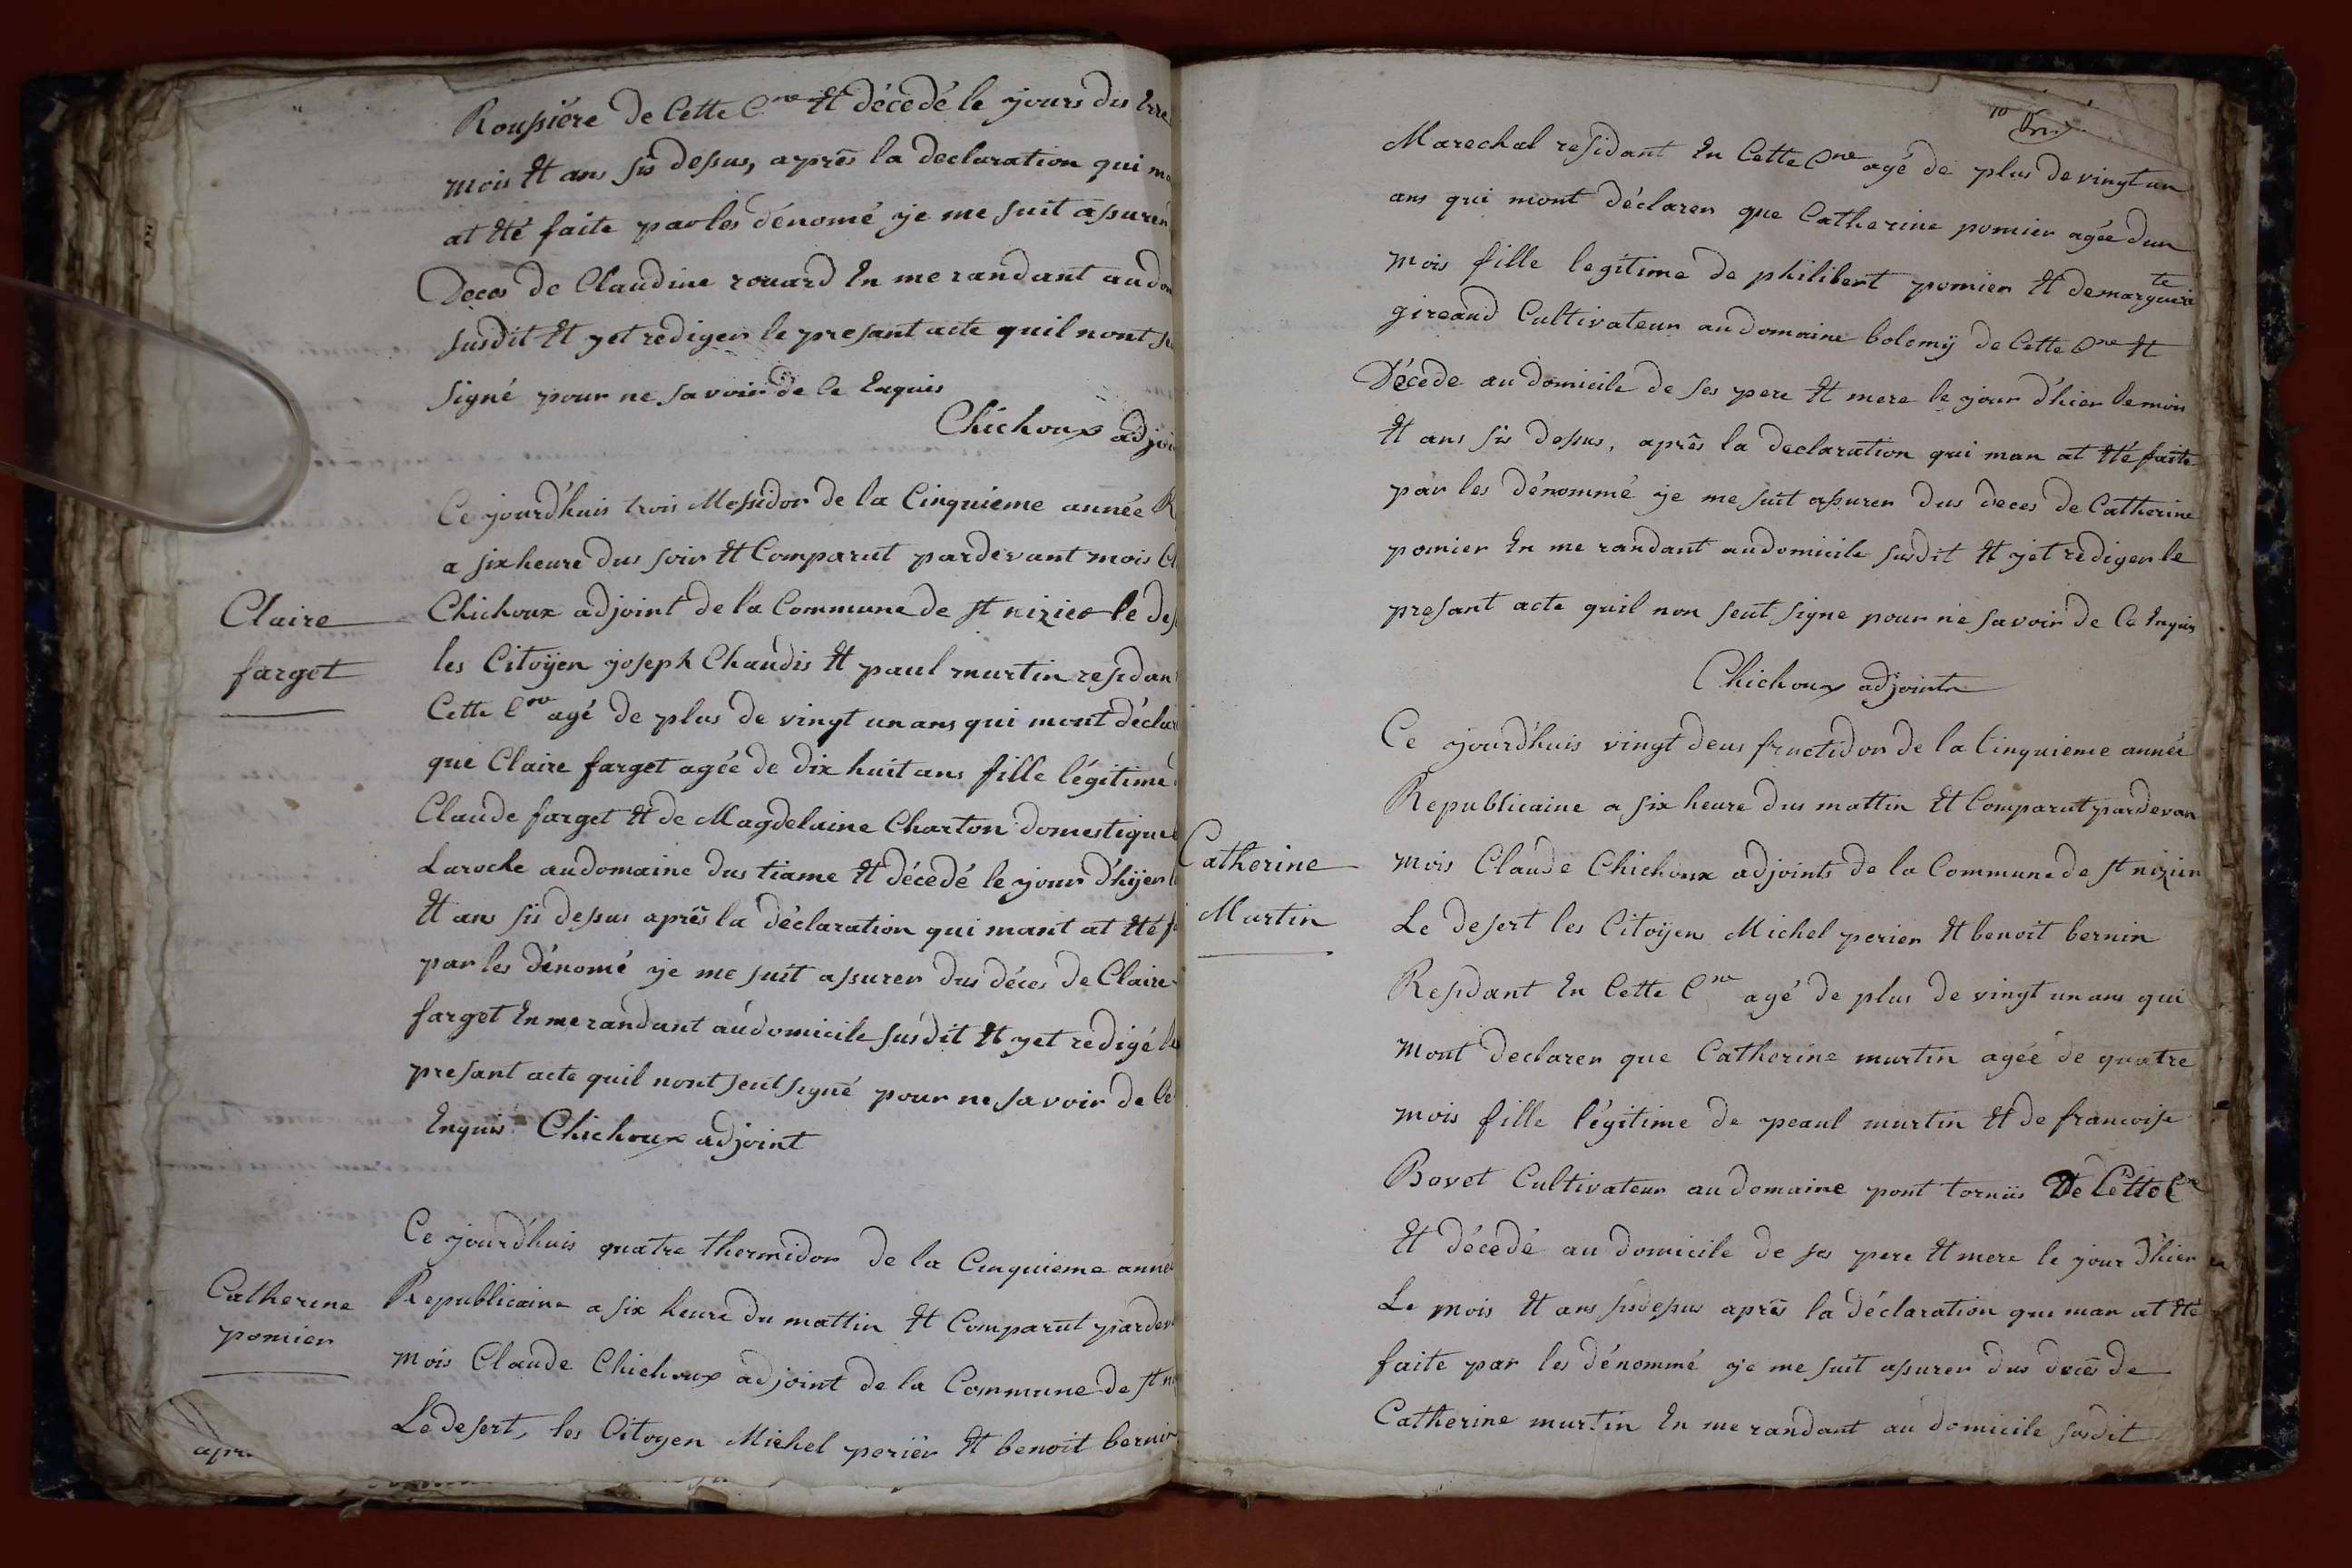 Roussiére de Cette Cne Et décedé le jours dus
mois Et ans sis dessus, aprês la declaration qui
at Eté faite par les dénomé je me suit assurer
Deces de Claudine rouard En me randant au
susdit Et yet rediger le presant acte quil nont
signé pour ne savoir de ce Enquis
Chichoux adjoi
Ce jourd'huis trois Messidor de la Cinquieme année R
a six heure dus soir Et Comparut pardevant mois
Claire
farget
Chichoux adjoint de la Commune de st nizier le des
les Citoÿen joseph Chaudis Et paul murtin residan
Cette Cne agé de plus de vingt un ans qui mont déclar
que Claire farget agée de dix huit ans fille légitime
Claude farget Et de Magdelaine Charton domestique
Laroche au domaine dus tiame Et décedé le jour d'hijer
Et ans sis dessus aprês la déclaration qui mant at Eté f
par les dénomé je me suit assurer dus déces de Claire
farget En me randant au domicile susdit Et yet redigé le
presant acte quil nont seut signé pour ne savoir de Ce
Enquis Chichoux adjoint
Ce jourd'huis quatre thermidor de la Cinquieme anné
Catherine
pomier
Republicaine a six heure du mattin Et Comparut pardev
mois Claude Chichoux adjoint de la Commune de st n
Le desert, les Citoyen Michel periér Et benoit bernin
apr
10
Marechal residant En Cette Cne agé de plus de vingt un
ans qui mont déclarer que Catherine pomier agée dun
mois fille legitime de philibert pomier Et de marguerite
gireaud Cultivateur au domaine bolomÿ de Cette Cne Et
Décede au domicile de ses pere Et mere le jour d'hier le mois
Et ans sis dessus, aprês la declaration qui man at Eté faite
par les dénommé je me suit assurer dus deces de Catherine
pomier En me randant au domicile susdit Et jet rediger le
presant acte quil non seut signe pour ne savoir de Ce Enquis
Chichoux adjoints
Ce jourd'huis vingt deus fructidor de la Cinquieme année
Republicaine a six heure dus mattin Et Comparut pardevan
Catherine
Murtin
mois Claude Chichoux adjoints de la Commune de st nizier
Le desert les Citoÿens Michel perier Et benoit bernin
Residant En Cette Cne agé de plus de vingt un ans qui
mont declarer que Catherine murtin agée de quatre
mois fille légitime de peaul murtin Et de francoise
Bovet Cultivateur au domaine pont torniis De Cette Cne
Et décedé au domicile de ses pere Et mere le jour d'hier
Le mois Et ans sisdessus aprês la déclaration qui man at Eté
faite par les dénommé je me suit assurer dus decês de
Catherine murtin En me randant au domicile susdit